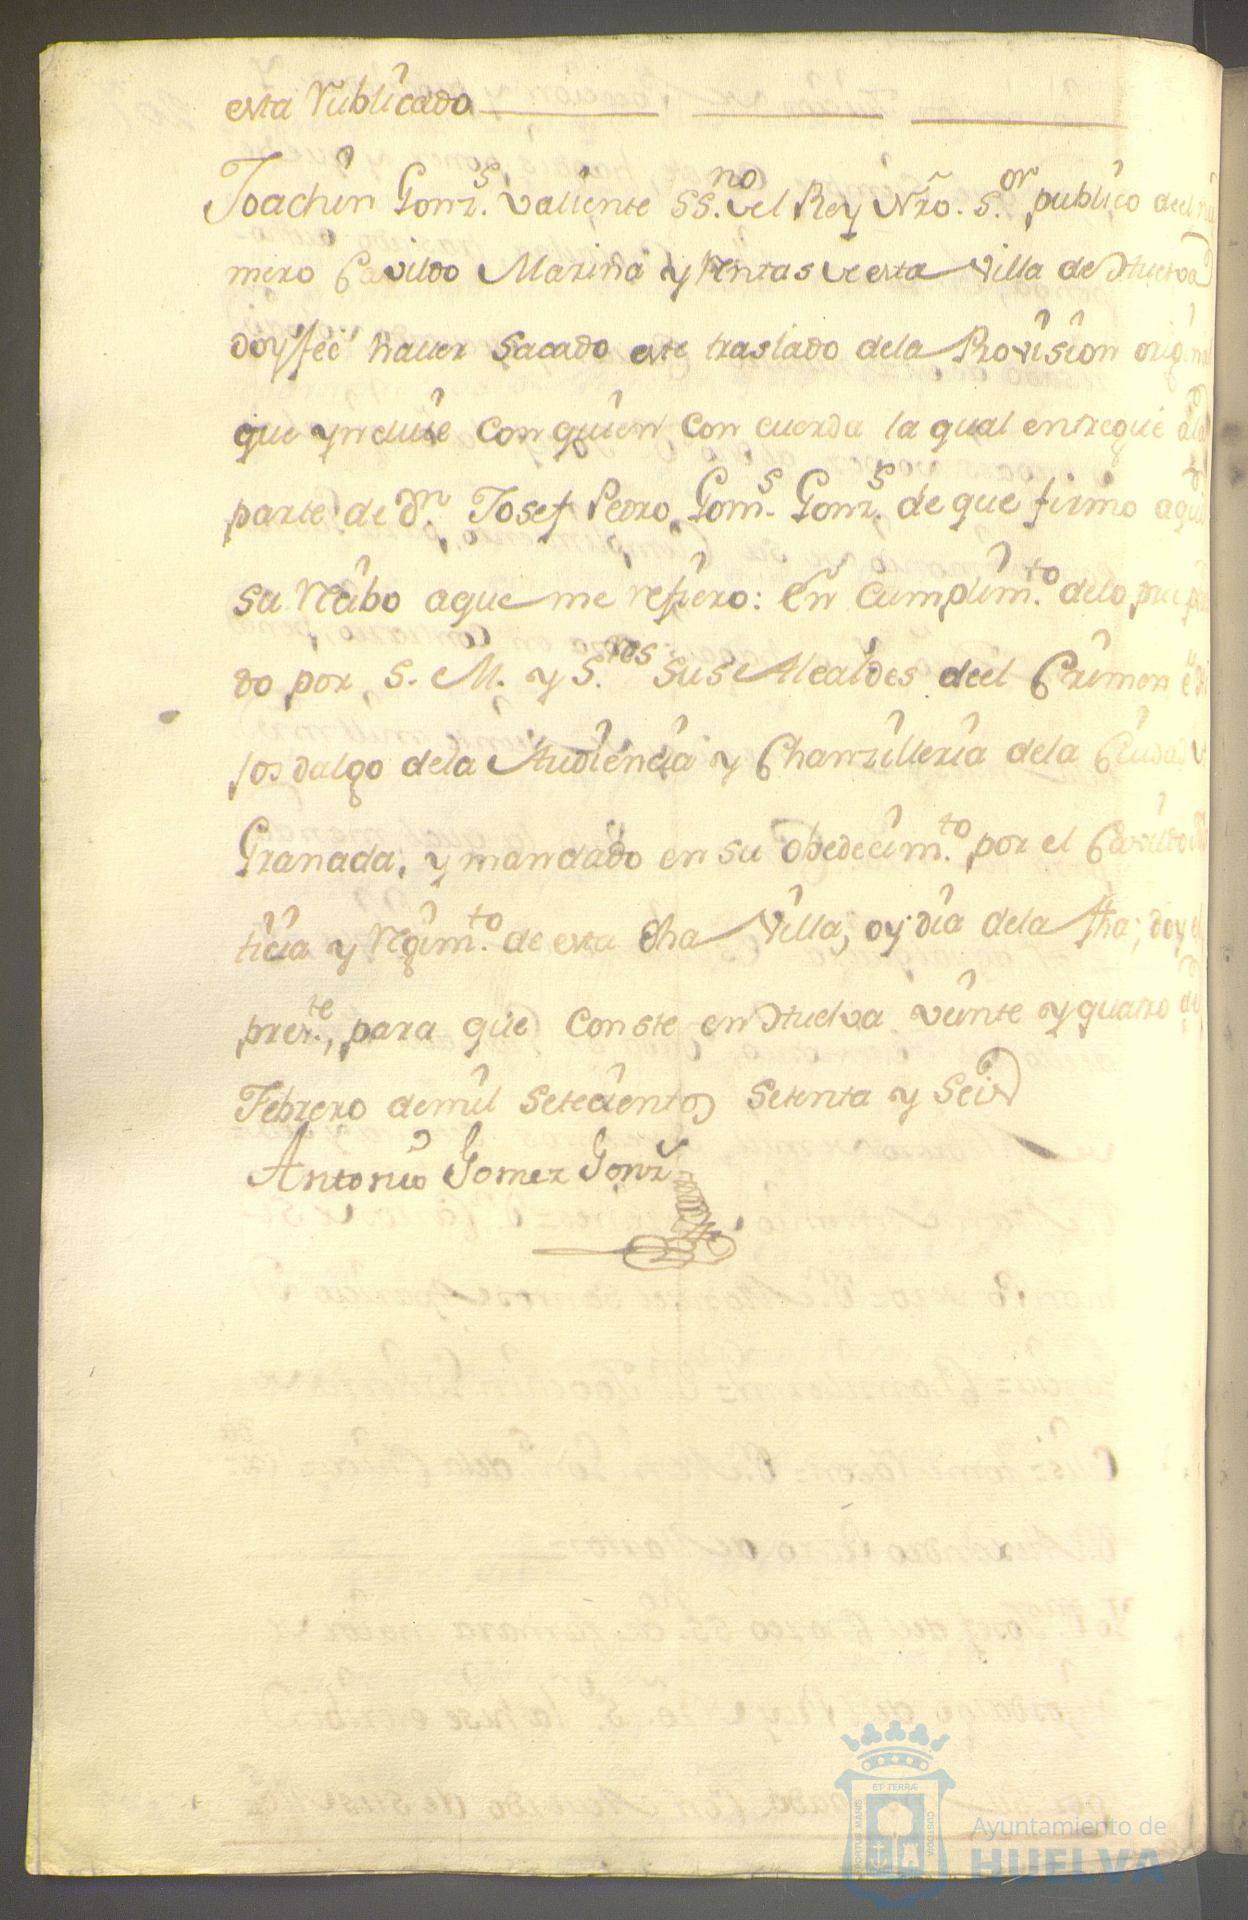 esta Rublicado
Joachin Gonz.s Valiente SS.no del Rey Nro. S.or publico deel nu
mero Cavildo Marina y Rentas de esta Villa de Huelva
doy feè haver sacado este traslado dela Provision origin
que ynclui con quien con cuerda la qual entregué ala
parte de Dn. Josef Pedro Gom.s Gonz.s de que firmó aqui
su Recibo aque me refiero: En cumplim.to delo
do por S. M. y S.res sus Alcaldes deel Crimen è
fos dalgo dela Audiencia y Chanzilleria dela Ciudad
Granada, y mandado en su obedecim.to por el Cavildo
ticia y Regim.to de esta dha Villa, oy dia dela fha; doy el
pres.te, para que conste en Huelva veinte y quatro de
Febrero demil setecientos setenta y seis
Antonio Gomez Gonz
ET TERRÆ
PORTUS MARIS
CUSTODIA
Ayuntamiento de
HUELVA